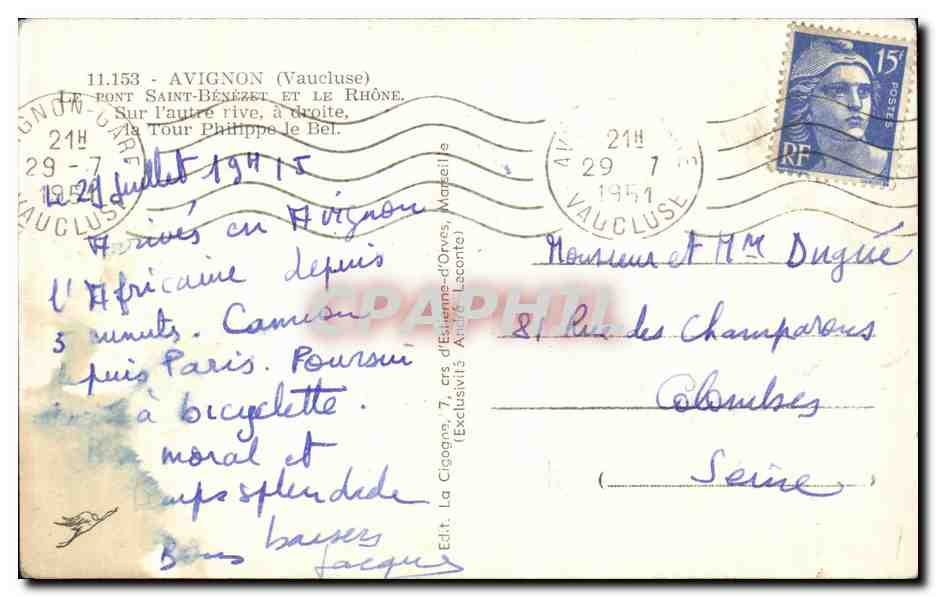 11.153 - AVIGNON (Vaucluse)
LE PONT SAINT-BÉNÉZET ET LE RHÔNE.
Sur l'autre rive, à droite,
la Tour Philippe le Bel.
AVIGNON-GARE
21H
29-7
1951
VAUCLUSE
Le 29 Juillet 19H15
Arrivés en Avignon
l'Africaine depuis
5 minuts. Camion
puis Paris. Poursui
à bicyclette.
moral et
mps splendide
Bons baisers
Jacques
Edit. La Cigogne, 7, crs d'Estienne-d'Orves, Marseille
(Exclusivité André Laconte)
21H
29 7
1951
VAUCLUSE
15F
POSTES
RF
Monsieur et Mme Dugué
81 Rue des Champarons
Colombes
(Seine
CPAPHIL